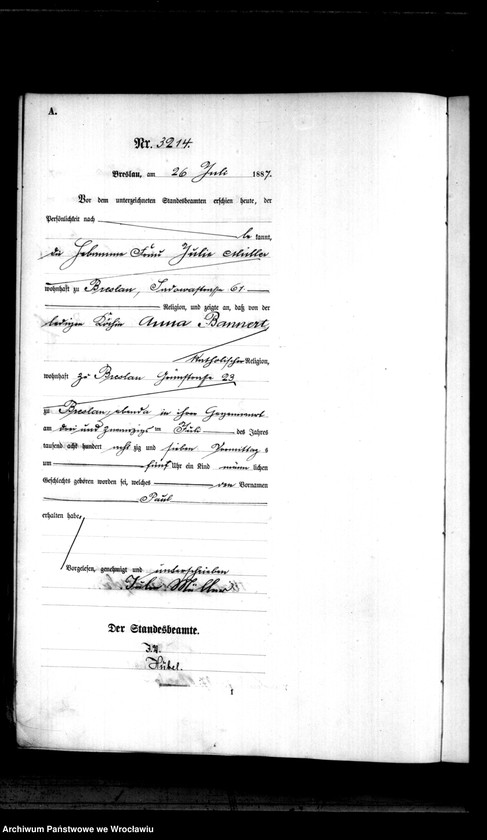 A.
Nr. 3214.
Breslau, am 26 Juli 1887.
Vor dem unterzeichneten Standesbeamten erschien heute, der
Persönlichkeit nach
be kannt,
die Hebamme Frau Julie Müller
wohnhaft zu Breslau, Sadowastraße 61
Religion, und zeigte an, daß von der
ledigen Köchin Anna Bannert,
katholischer Religion,
wohnhaft zu Breslau Grünstraße 23
zu Breslau, ebenda in ihrer Gegenwart
am drei und zwanzigs ten Juli des Jahres
tausend acht hundert acht zig und sieben Vormittag s
um fünf Uhr ein Kind männ lichen
Geschlechts geboren worden sei, welches den Vornamen
Paul
erhalten habe.
Vorgelesen, genehmigt und unterschrieben
Julie Müller
Der Standesbeamte.
J.V.
Hübel.
1
Archiwum Państwowe we Wrocławiu